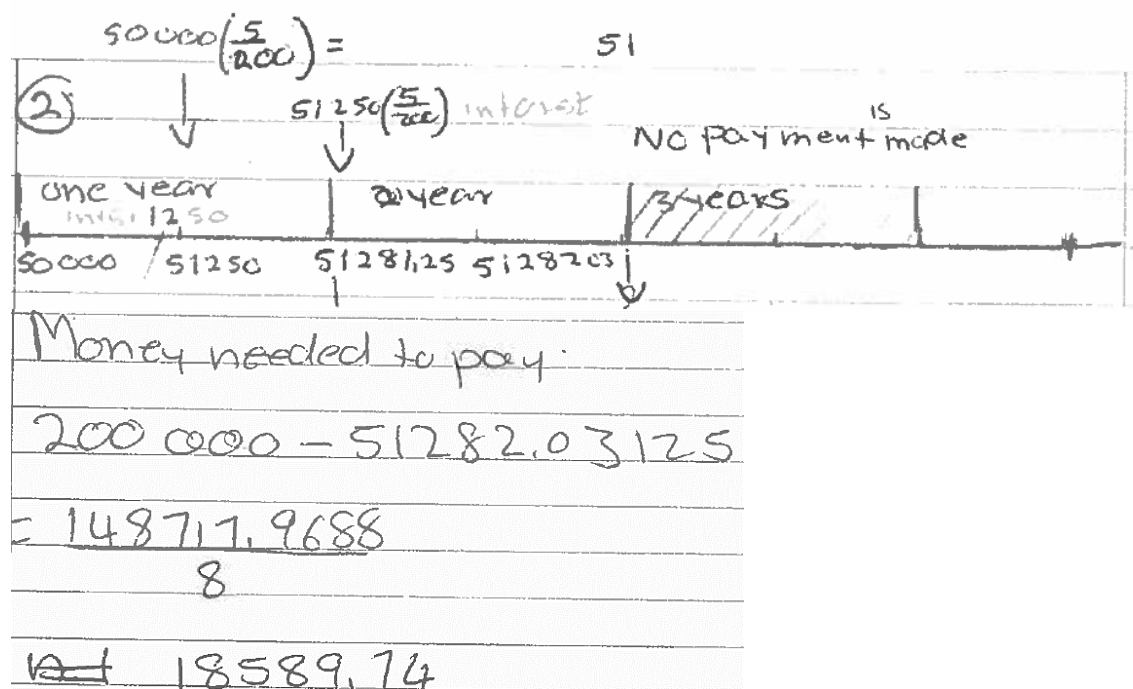 50000(5/200) = 51
② 51250(5/200) interest
NO payment is made
one year 2 year 3 years
1250
50000 51250 51281,25 5128203
Money needed to pay
200 000 - 51282.03125
= 148717.9688
8
18589.74